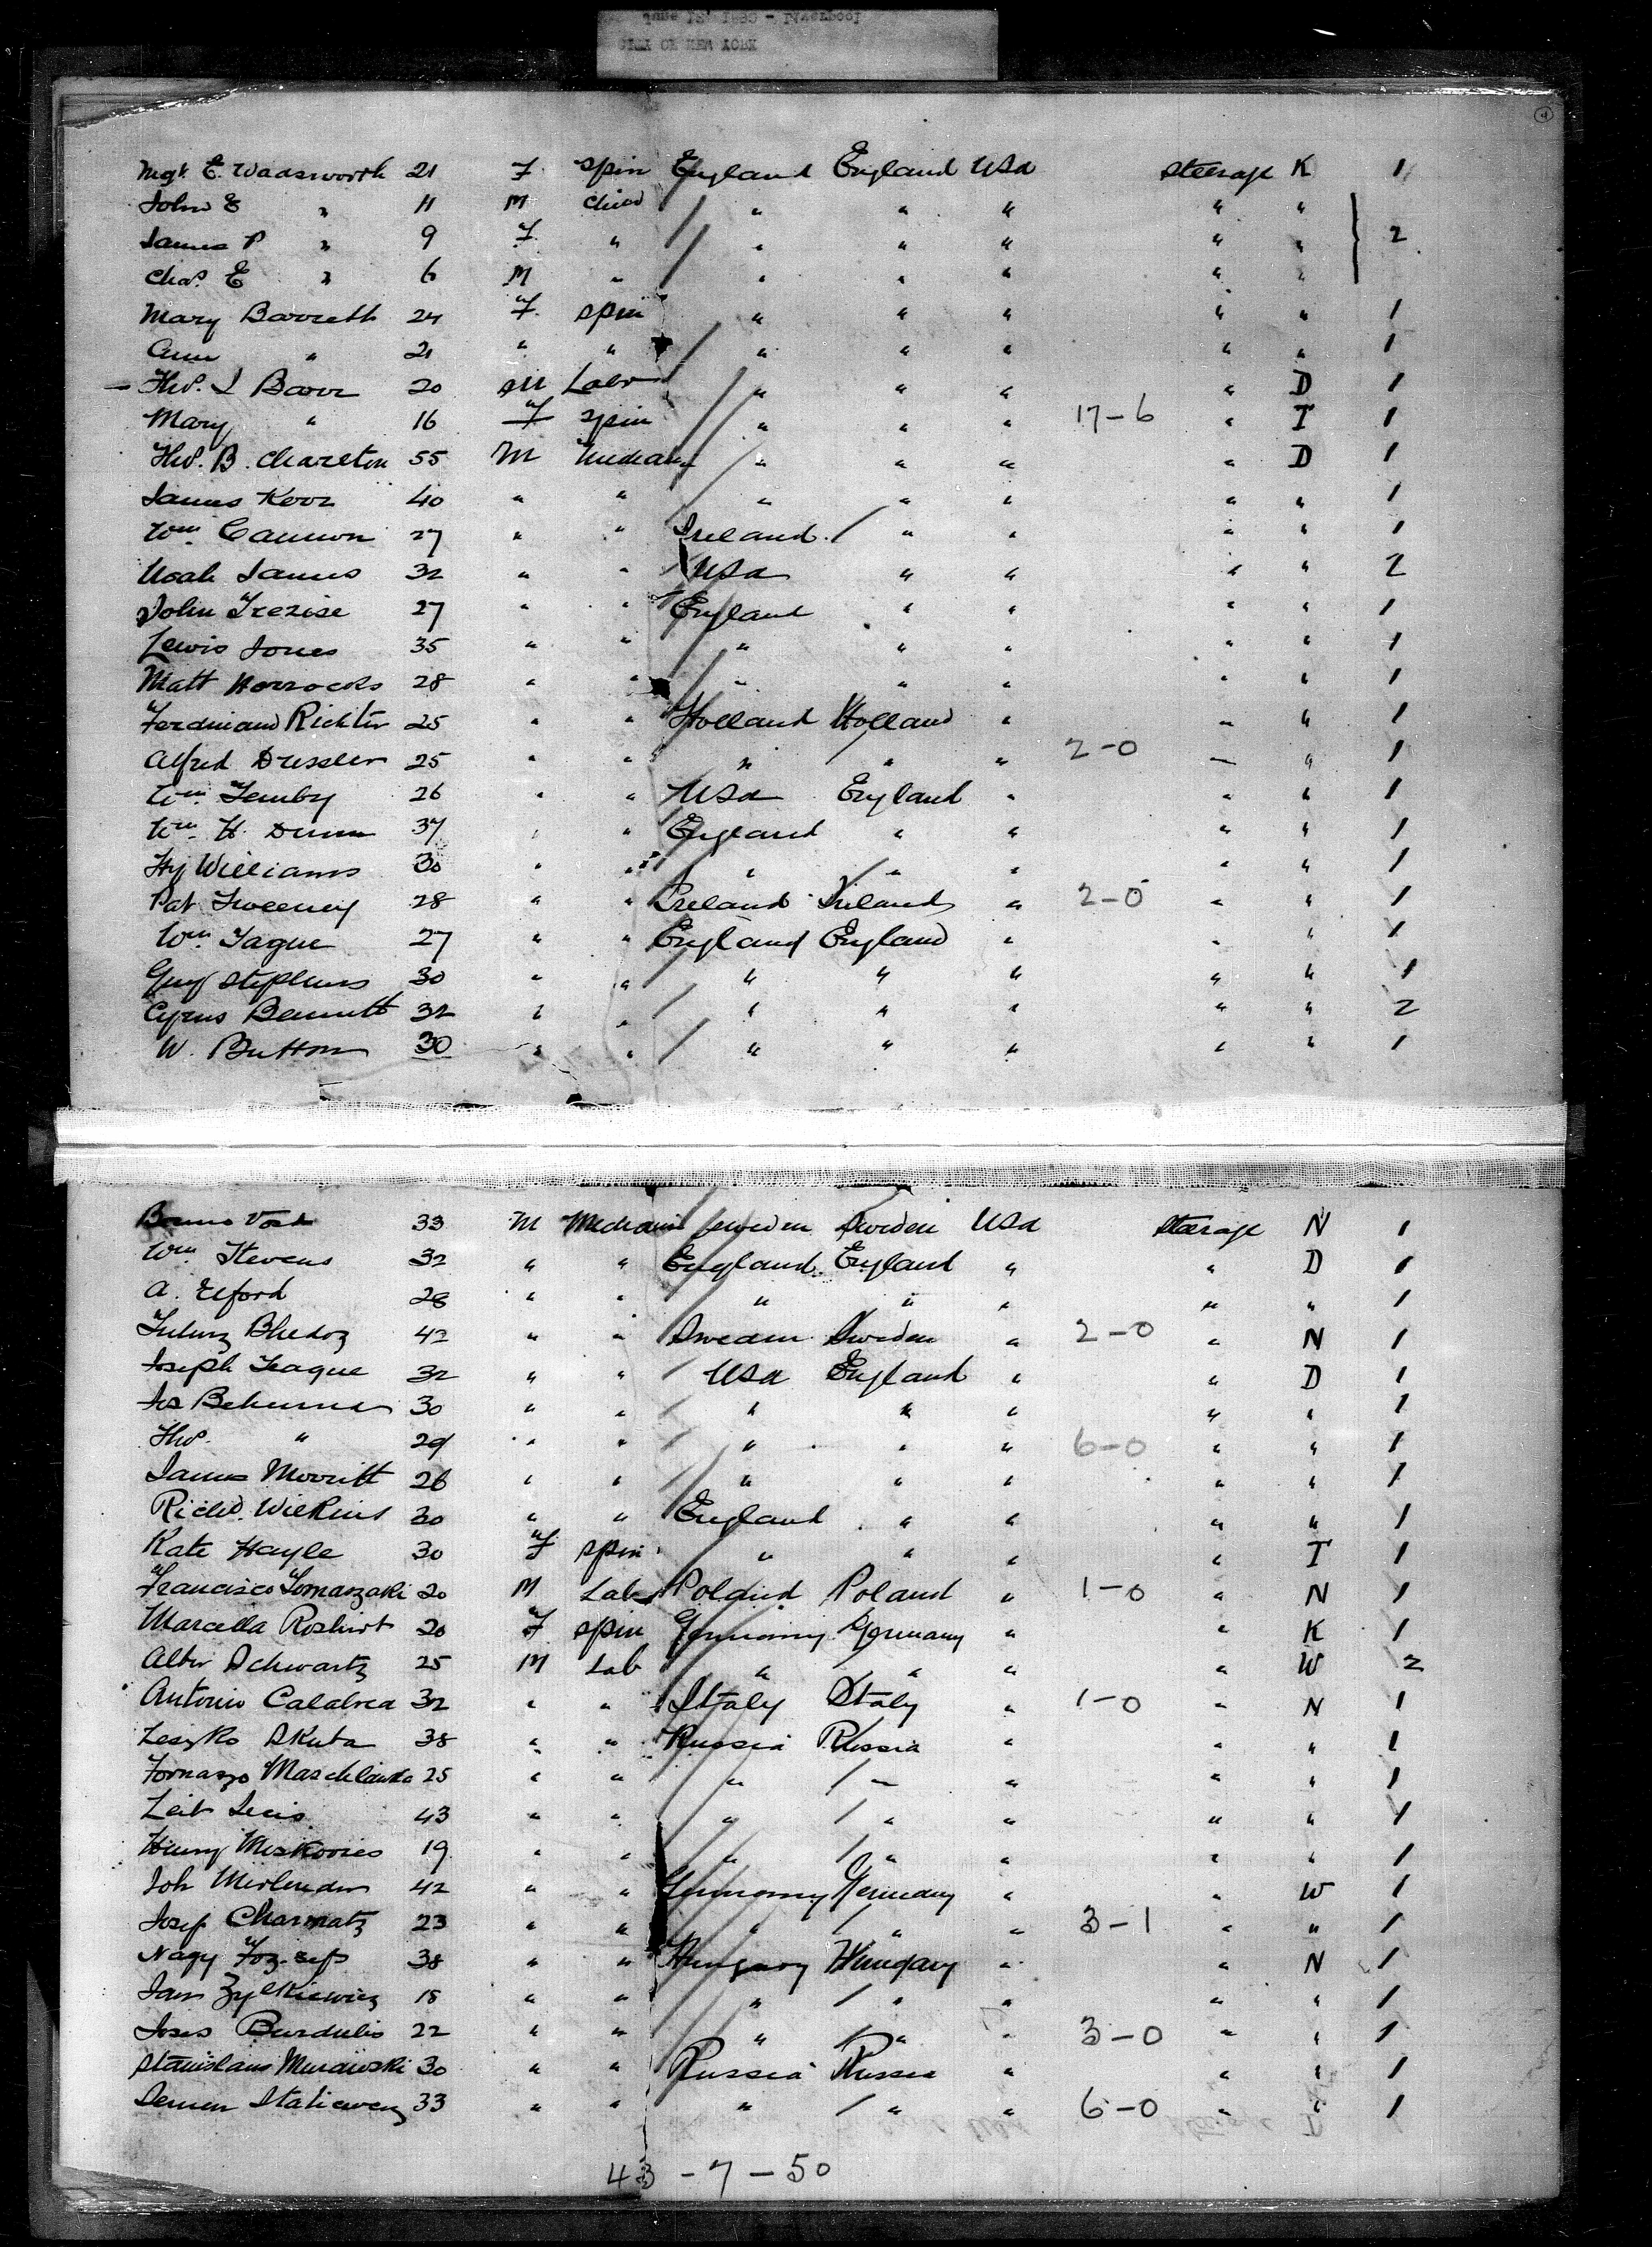 June 12, 1890 - Liverpool
CITY OF NEW YORK
4
Mgt. E. Wadsworth 21 F spin England England USA Steerage K 1
John E " 11 M child " " " " "
James P " 9 F " " " " " " 2
Chas. E " 6 M " " " " " "
Mary Barrett 24 F. spin " " " " " 1
Ann " 21 " " " " " " " 1
- Thos. I Barr 20 M Labr " " " " D 1
Mary " 16 F spin " " " 17-6 " T 1
Thos. B. Charlton 55 M " " " " D 1
James Kerr 40 " " " " " " " 1
Wm. Cannon 27 " " Ireland " " " " 1
Noah James 32 " " USA " " " " 2
John Trezise 27 " " England " " " " 1
Lewis Jones 35 " " " " " " " 1
Matt Horrocks 28 " " " " " " " 1
Ferdinand Richter 25 " " Holland Holland " " " 1
Alfred Dressler 25 " " " " " 2-0 — " 1
Wm. Temby 26 " " USA England " " " 1
Wm. H. Dunn 37 " " England " " " " 1
Hy Williams 30 " " " " " " " 1
Pat Sweeney 28 " " Ireland Ireland " 2-0 " " 1
Wm. Tague 27 " " England England " " " 1
Guy Stephens 30 " " " " " " " 1
Cyrus Bennett 32 " " " " " " " 2
W. Button 30 " " " " " " " 1
33 M Mechanic Sweden Sweden USA Steerage N 1
Wm. Stevens 32 " " England England " " D 1
A. Elford 28 " " " " " " " 1
42 " " Sweden Sweden " 2-0 " N 1
Joseph Teague 32 " " USA England " " D 1
Jos Behenna 30 " " " " " " " 1
Thos. " 29 " " " " " 6-0 " " 1
James Merritt 26 " " " " " " " 1
Richd. Wilkins 30 " " England " " " " 1
Kate Hayle 30 F spin " " " " T 1
Francisco Tomaszaki 20 M Lab Poland Poland " 1-0 " N 1
Marcella Roshirt 20 F spin Germany Germany " " K 1
Albir Schwartz 25 M Lab " " " " W 2
Antonio Calabrea 32 " " Italy Italy " 1-0 " N 1
Leszko Skuta 38 " " Russia Russia " " " 1
Tomaszo 25 " " " " " " " 1
Leib 43 " " " " " " " 1
Henry Meskovies 19 " " " " " " " 1
Joh 42 " " Germany Germany " " W 1
Josef Charmatz 23 " " " " " 3-1 " " 1
Nagy Joz-sef 38 " " Hungary Hungary " " N 1
Jan Zylkiewicz 18 " " " " " " " 1
Joses Burdulis 22 " " " " " 3-0 " " 1
Stanislaus Murawski 30 " " Russia Russia " " " 1
Semen 33 " " " " " 6-0 " " 1
43 - 7 - 50